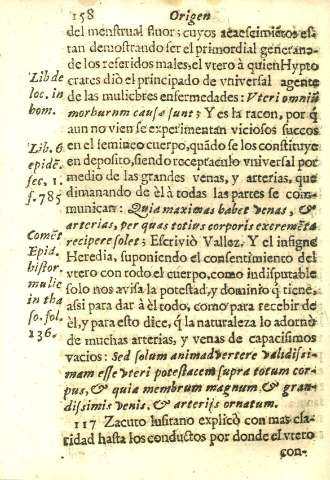 158 Origen
del menstrual fluor; cuyos acaescimiẽtos es-
tan demostrando ser el primordial generano-
de los referidos males, el vtero à quien Hypto
crates diò el principado de vniversal agente
de las mulicbres enfermedades: Vteri omniũ
morhurum causæ sunt; Y es la racon, por q̃
aun no vien se experimentan viciosos succos
en el femineo cuerpo, quãdo se los constituye
en deposito, siendo receptaculo vniversal por
medio de las grandes venas, y arterias, que
dimanando de èl à todas las partes se co-
munican: Quia maximas habet venas, &
arterias, per quas totius corporis excremẽta
recipere solet; Escriviò Vallez. Y el insigne
Heredia, suponiendo el consentimiento del
vtero con todo el cuerpo, como indisputable
solo nos avisa la potestad, y dominio q̃ tiene,
assi para dar à èl todo, como para recebir de
èl, y para esto dice, q̃ la naturaleza lo adornò
de muchas arterias, y venas de capacissimos
vacios: Sed solum animadvertere validissi-
mam esse vteri potestacem supra totum cor-
pus, & quia membrum magnum & gran-
dissimis venis, & arterijs ornatum.
117 Zacuto lusitano explicò con mas cla-
ridad hasta los conductos por donde el vtero
con-
Lib de
loc. in
hom.
Lib. 6.
epidẽ.
sec. 1.
f. 785
Comẽt
Epid.
histor.
mulic
in tha
so. fol.
136.